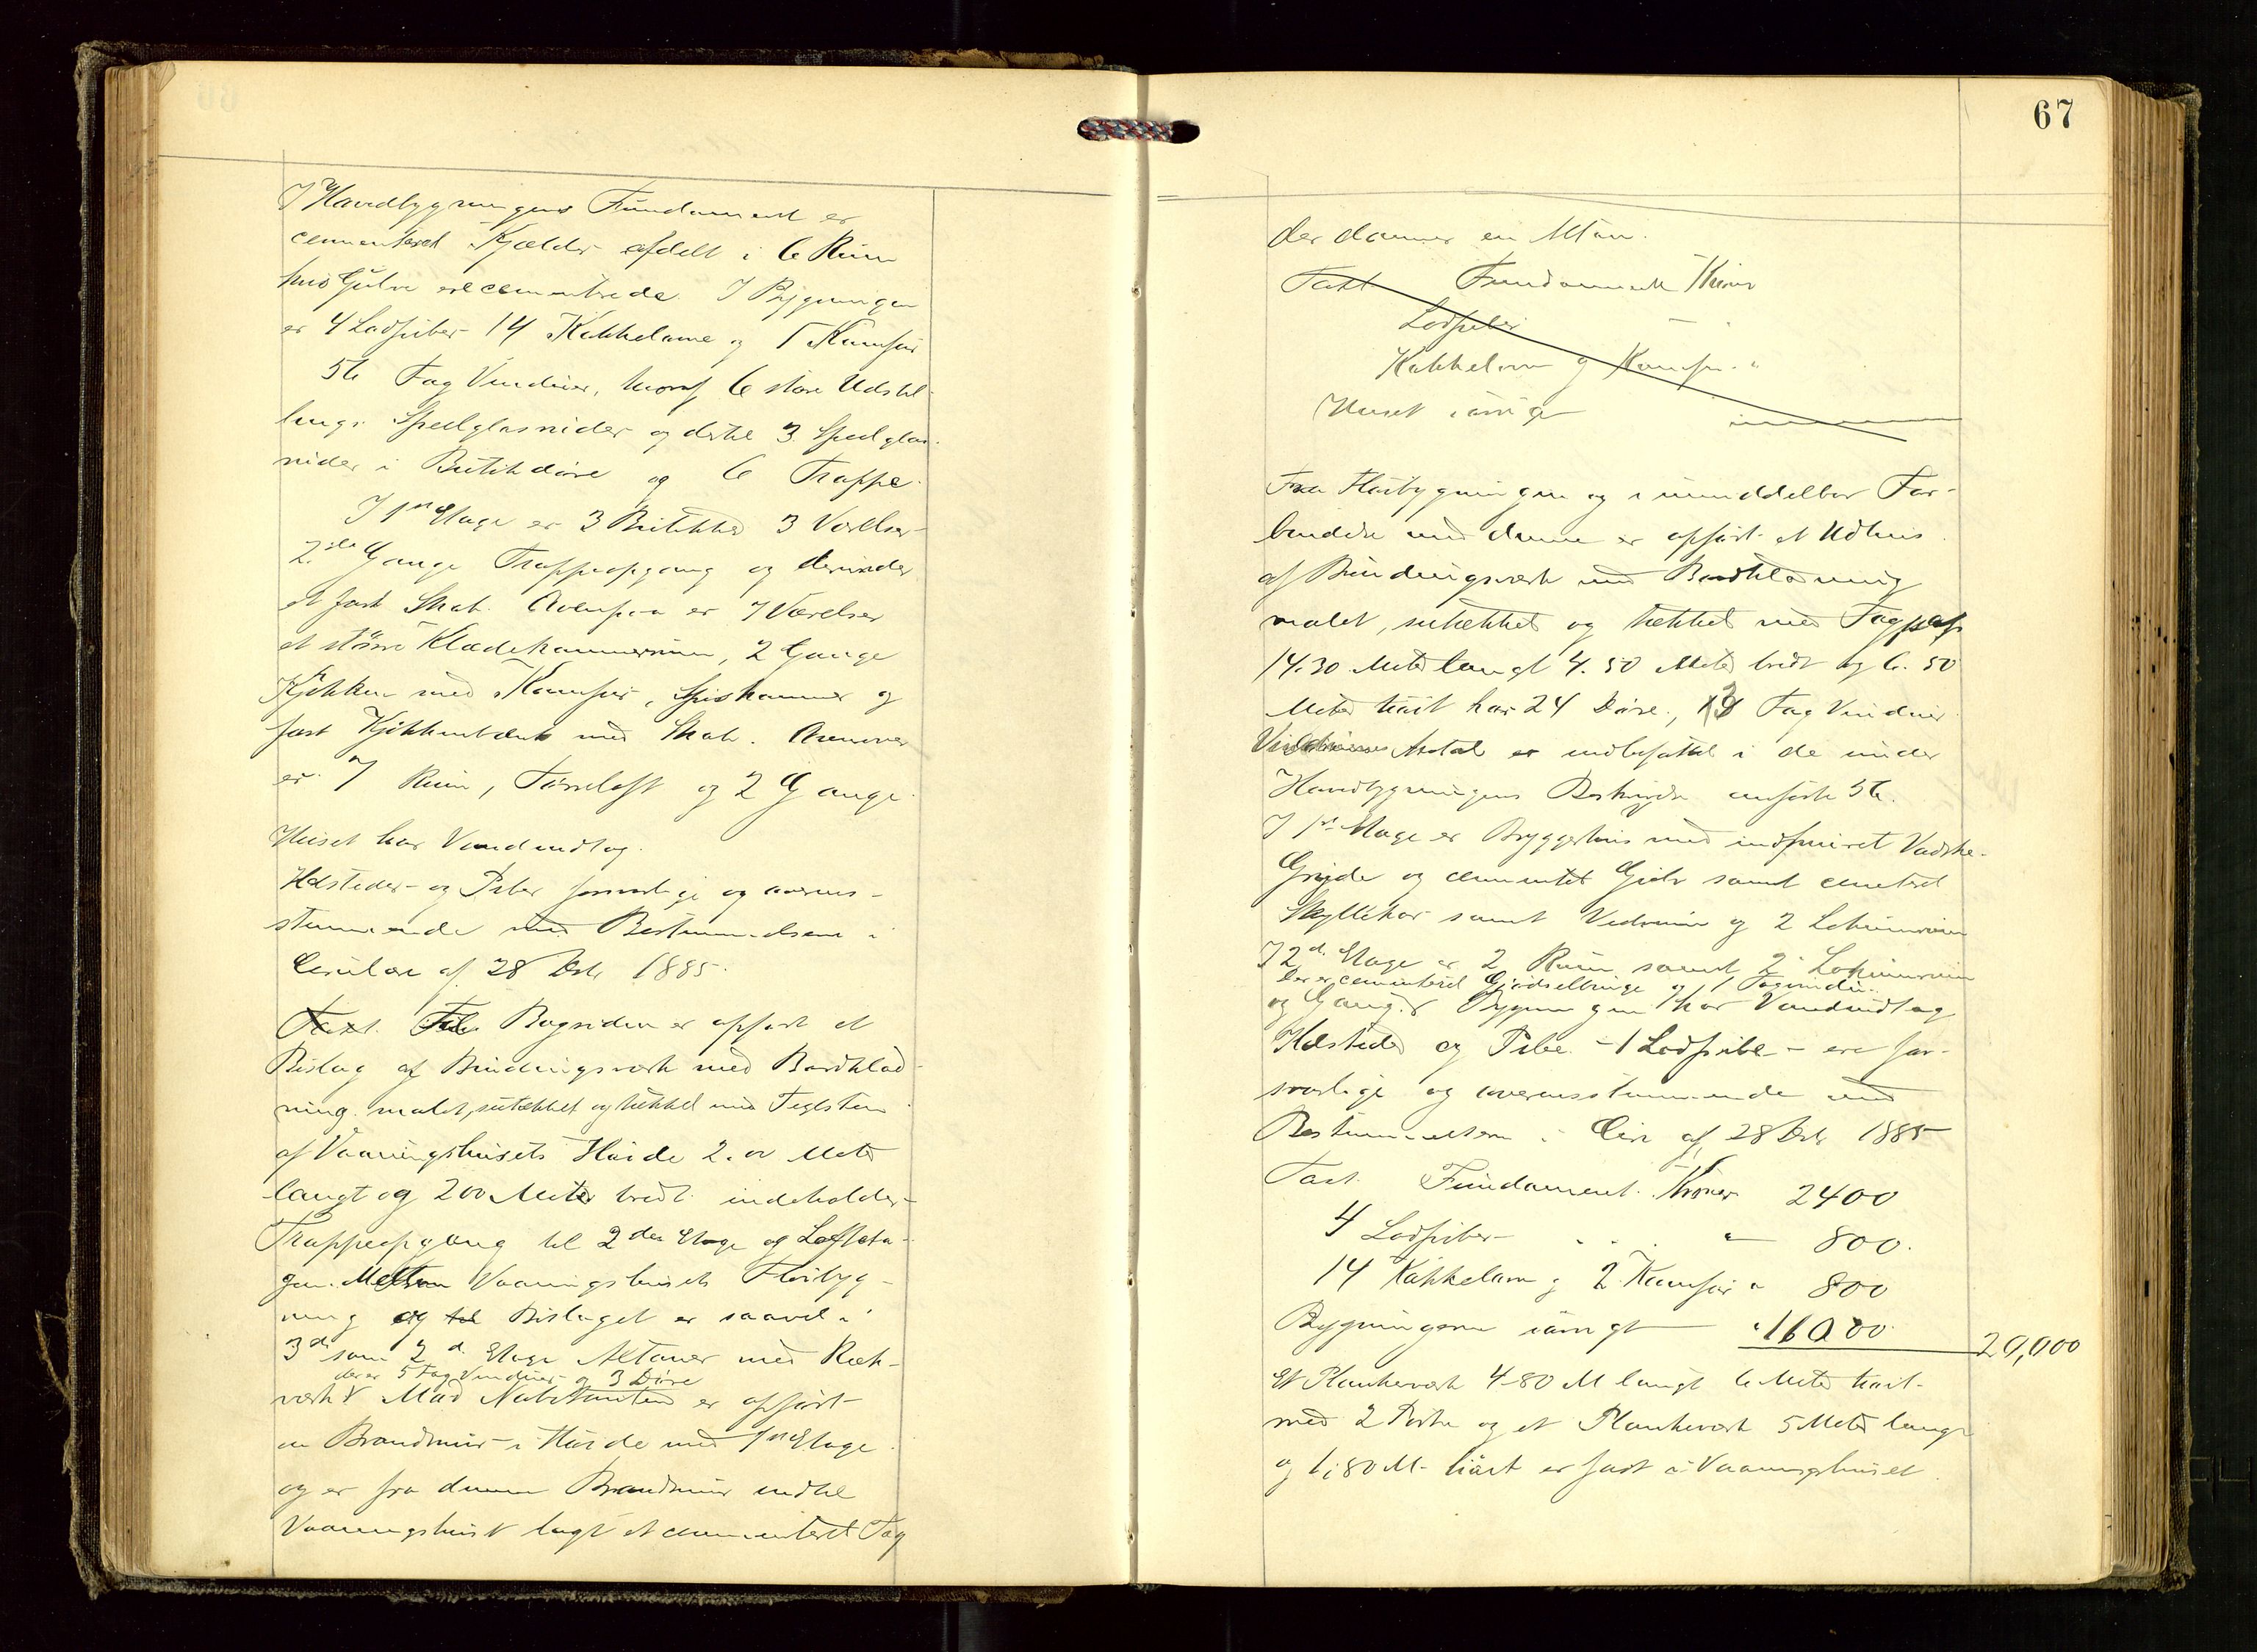 I Hovedbygningens Fundament er
cementeret Kjælder afdelt i 6 Rum
hvis Gulve ere cementerede. I Bygningen
er 4 Lodpiber 14 Kakkelovne og 1 Komfur
56 Fag Vinduer, hvoraf 6 store Udstil-
lings Speilglasruder og dertil 3 Speilglas-
ruder i Butikdøre og 6 Trappe.
I 1ste Etage er 3 Butikker 3 Værelser
2de Gange Trappeopgang og derunder
et fast Skab. Ovenpaa er 7 Værelser
et større Klædekammerrum, 2 Gange
Kjøkken med Komfur, Spiskammer og
fast Kjøkkenbænk med Skab. Ovenover
er 7 Rum, Tørreloft og 2 Gange.
Huset har Vandindlag.
Ildsteder og Piber forsvarlige og overens-
stemmende med Bestemmelserne i
Cirkulære af 28 Dcbr 1885.
Taxt. Til Bagsiden er opført et
Bislag af Bindingsværk med Bordklæd-
ning malet, sutækket og tækket med Teglsten
af Vaaningshusets Høide 2.00 Meter
langt og 2.00 Meter bredt indeholder
Trappeopgang til 2den Etage og Loftseta-
gen. Mellem Vaaningshusets Fløibyg-
ning og til Bislaget er saavel i
3die som 2den Etage Altaner med Ræk-
der er 5 Fag Vinduer og 3 Døre
værk. Mod Nabotomten er opført
en Brandmur i Høide med 1ste Etage
og er fra denne Brandmur indtil
Vaaningshuset lagt et cementeret Tag
67
der danner en Altan.
Taxt Fundament Kroner
Lodpiber
Kakkelovn og Komfur "
Huset iøvrigt
Fra Fløibygningen og i umiddelbar For-
bindelse med denne er opført et Udhus
af Bindingsværk med Bordklædning
malet, sutækket og tækket med Tagpap
14.30 Meter langt 4.50 Meter bredt og 6.50
Meter høit har 24 Døre, 13 Fag Vinduer
Vinduernes Antal er indbefattet i de under
Hovedbygningens Beskrivelse anførte 56.
I 1ste Etage er Bryggerhus med indmuret Vadske-
Gryde og cementet Gulv samt cementeret
Skyllekar samt Vedrum og 2 Lokumrum
I 2den Etage er 2 Rum samt 2 Lokumrum
Der er cementeret Gjødselbinge og 1 Tagvindu.
og Gang. Bygningen har Vandindlag
Ildsteder og Pibe - 1 Lodpibe - ere for-
svarlige og overensstemmende med
Bestemmelserne i Circ af 28 Dcbr 1885
Taxt. Fundament. Kroner 2400
4 Lodpiber " 800.
14 Kakkelovn og 2 Komfur " 800
Bygningerne iøvrigt " 16000 20,000
Et Plankeværk 4.80 M langt 6 Meter høit
med 2 Porte og et Plankeværk 5 Meter langt
og 1,80 M høit er fast i Vaaningshuset.